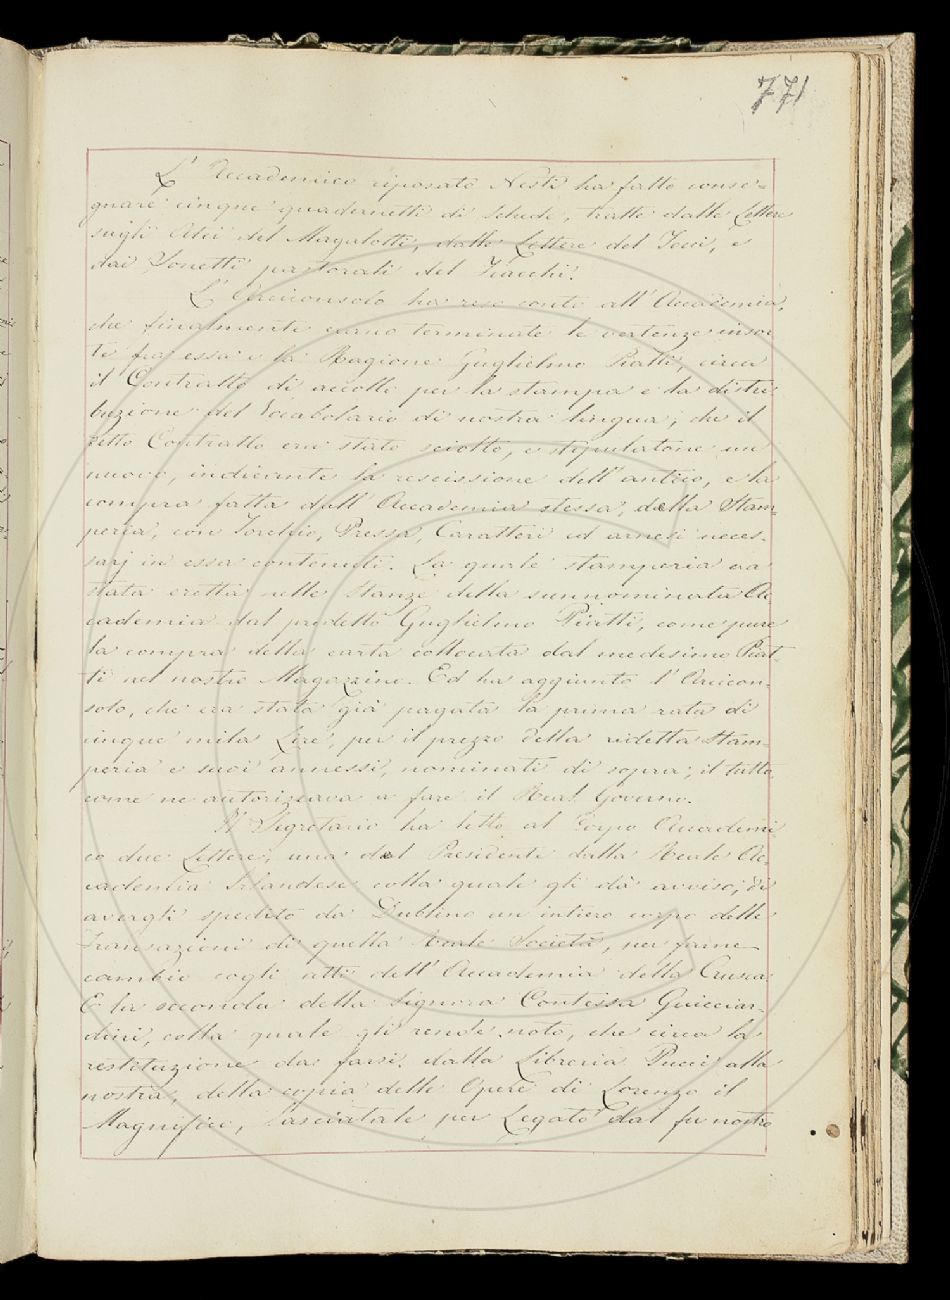 771
L' Accademico riposato Nesti ha fatto conse=
gnare cinque quadernetti di schede, tratte dalle Lettere
sugli Atei del Magalotti, dalle Lettere del Tocci, e
dai Sonetti pastorali del Fiacchi.
L' Arciconsolo ha reso conto all' Accademia,
che finalmente erano terminate le vertenze insor
te fra essa e la Ragione Guglielmo Piatti, circa
il Contratto di accollo per la stampa e la distri
buzione del Vocabolario di nostra lingua; che il
detto Contratto era stato sciolto, e stipulatone un
nuovo, indicante la rescissione dell' antico, e la
compra fatta dall' Accademia stessa, della Stam=
peria, con Torchio, Pressa, Caratteri ed arnesi neces-
sarj in essa contenuti. La quale stamperia era
stata eretta nelle Stanze della sunnominata Ac
cademia dal predetto Guglielmo Piatti, come pure
la compra della carta collocata dal medesimo Piat-
ti nel nostro Magazzino. Ed ha aggiunto l' Arcicon-
solo, che era stata già pagata la prima rata di
cinque mila Lire, per il prezzo della ridetta Stam-
peria e suoi annessi, nominati di sopra; il tutto
come ne autorizzava a fare il Real Governo.
Il Segretario ha letto al Corpo Accademi
co due Lettere, una del Presidente dalla Reale Ac-
cademia Irlandese colla quale gli dà avviso, di
avergli spedito da Dublino un intiero corpo delle
Transazioni di quella Reale Società, per farne
cambio cogli atti dell' Accademia della Crusca.
E la seconda della Signora Contessa Guicciar-
dini, colla quale gli rende noto, che circa la
restituzione da farsi dalla Libreria Pucci alla
nostra, della copia delle Opere di Lorenzo il
Magnifico, lasciatale per Legato dal fu nostro